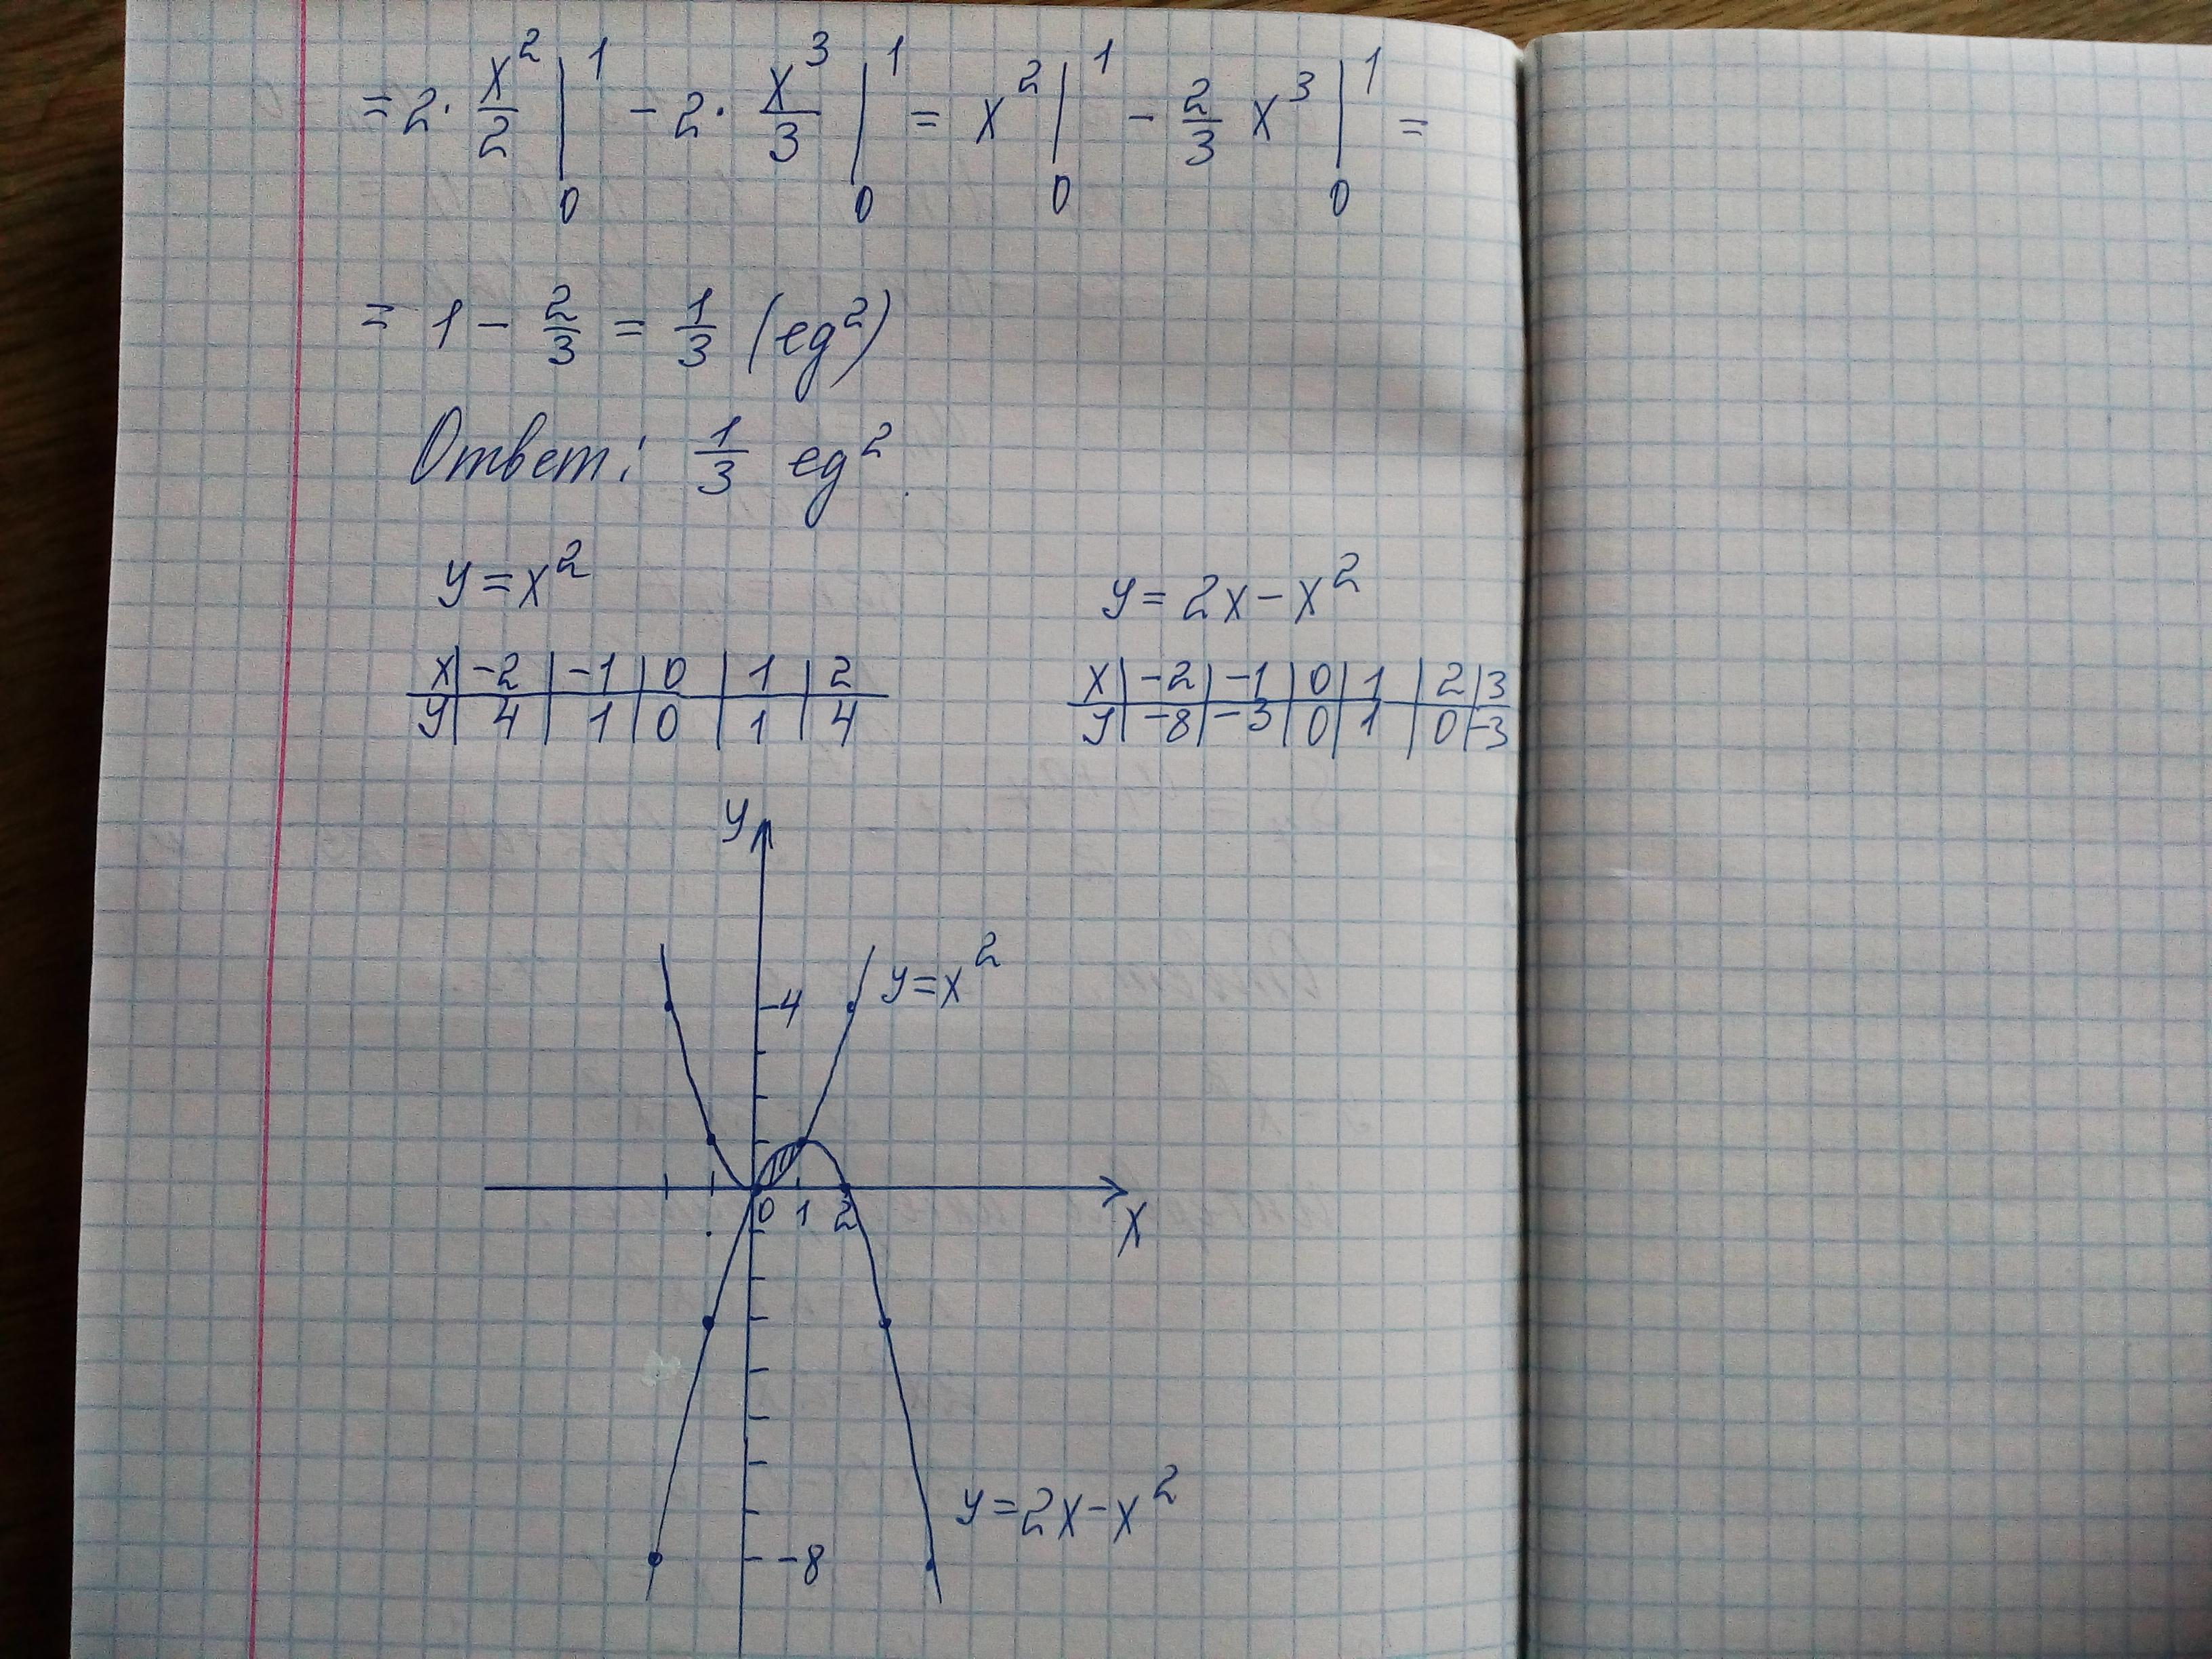 = 2 · x²/2 |₀¹ − 2 · x³/3 |₀¹ = x² |₀¹ − 2/3 x³ |₀¹ =
= 1 − 2/3 = 1/3 (ед²)
Ответ: 1/3 ед².
y = x²
x | −2 | −1 | 0 | 1 | 2
y | 4 | 1 | 0 | 1 | 4
y = 2x − x²
x | −2 | −1 | 0 | 1 | 2 | 3
y | −8 | −3 | 0 | 1 | 0 | −3
y
y = x²
4
0 1 2
x
y = 2x − x²
−8